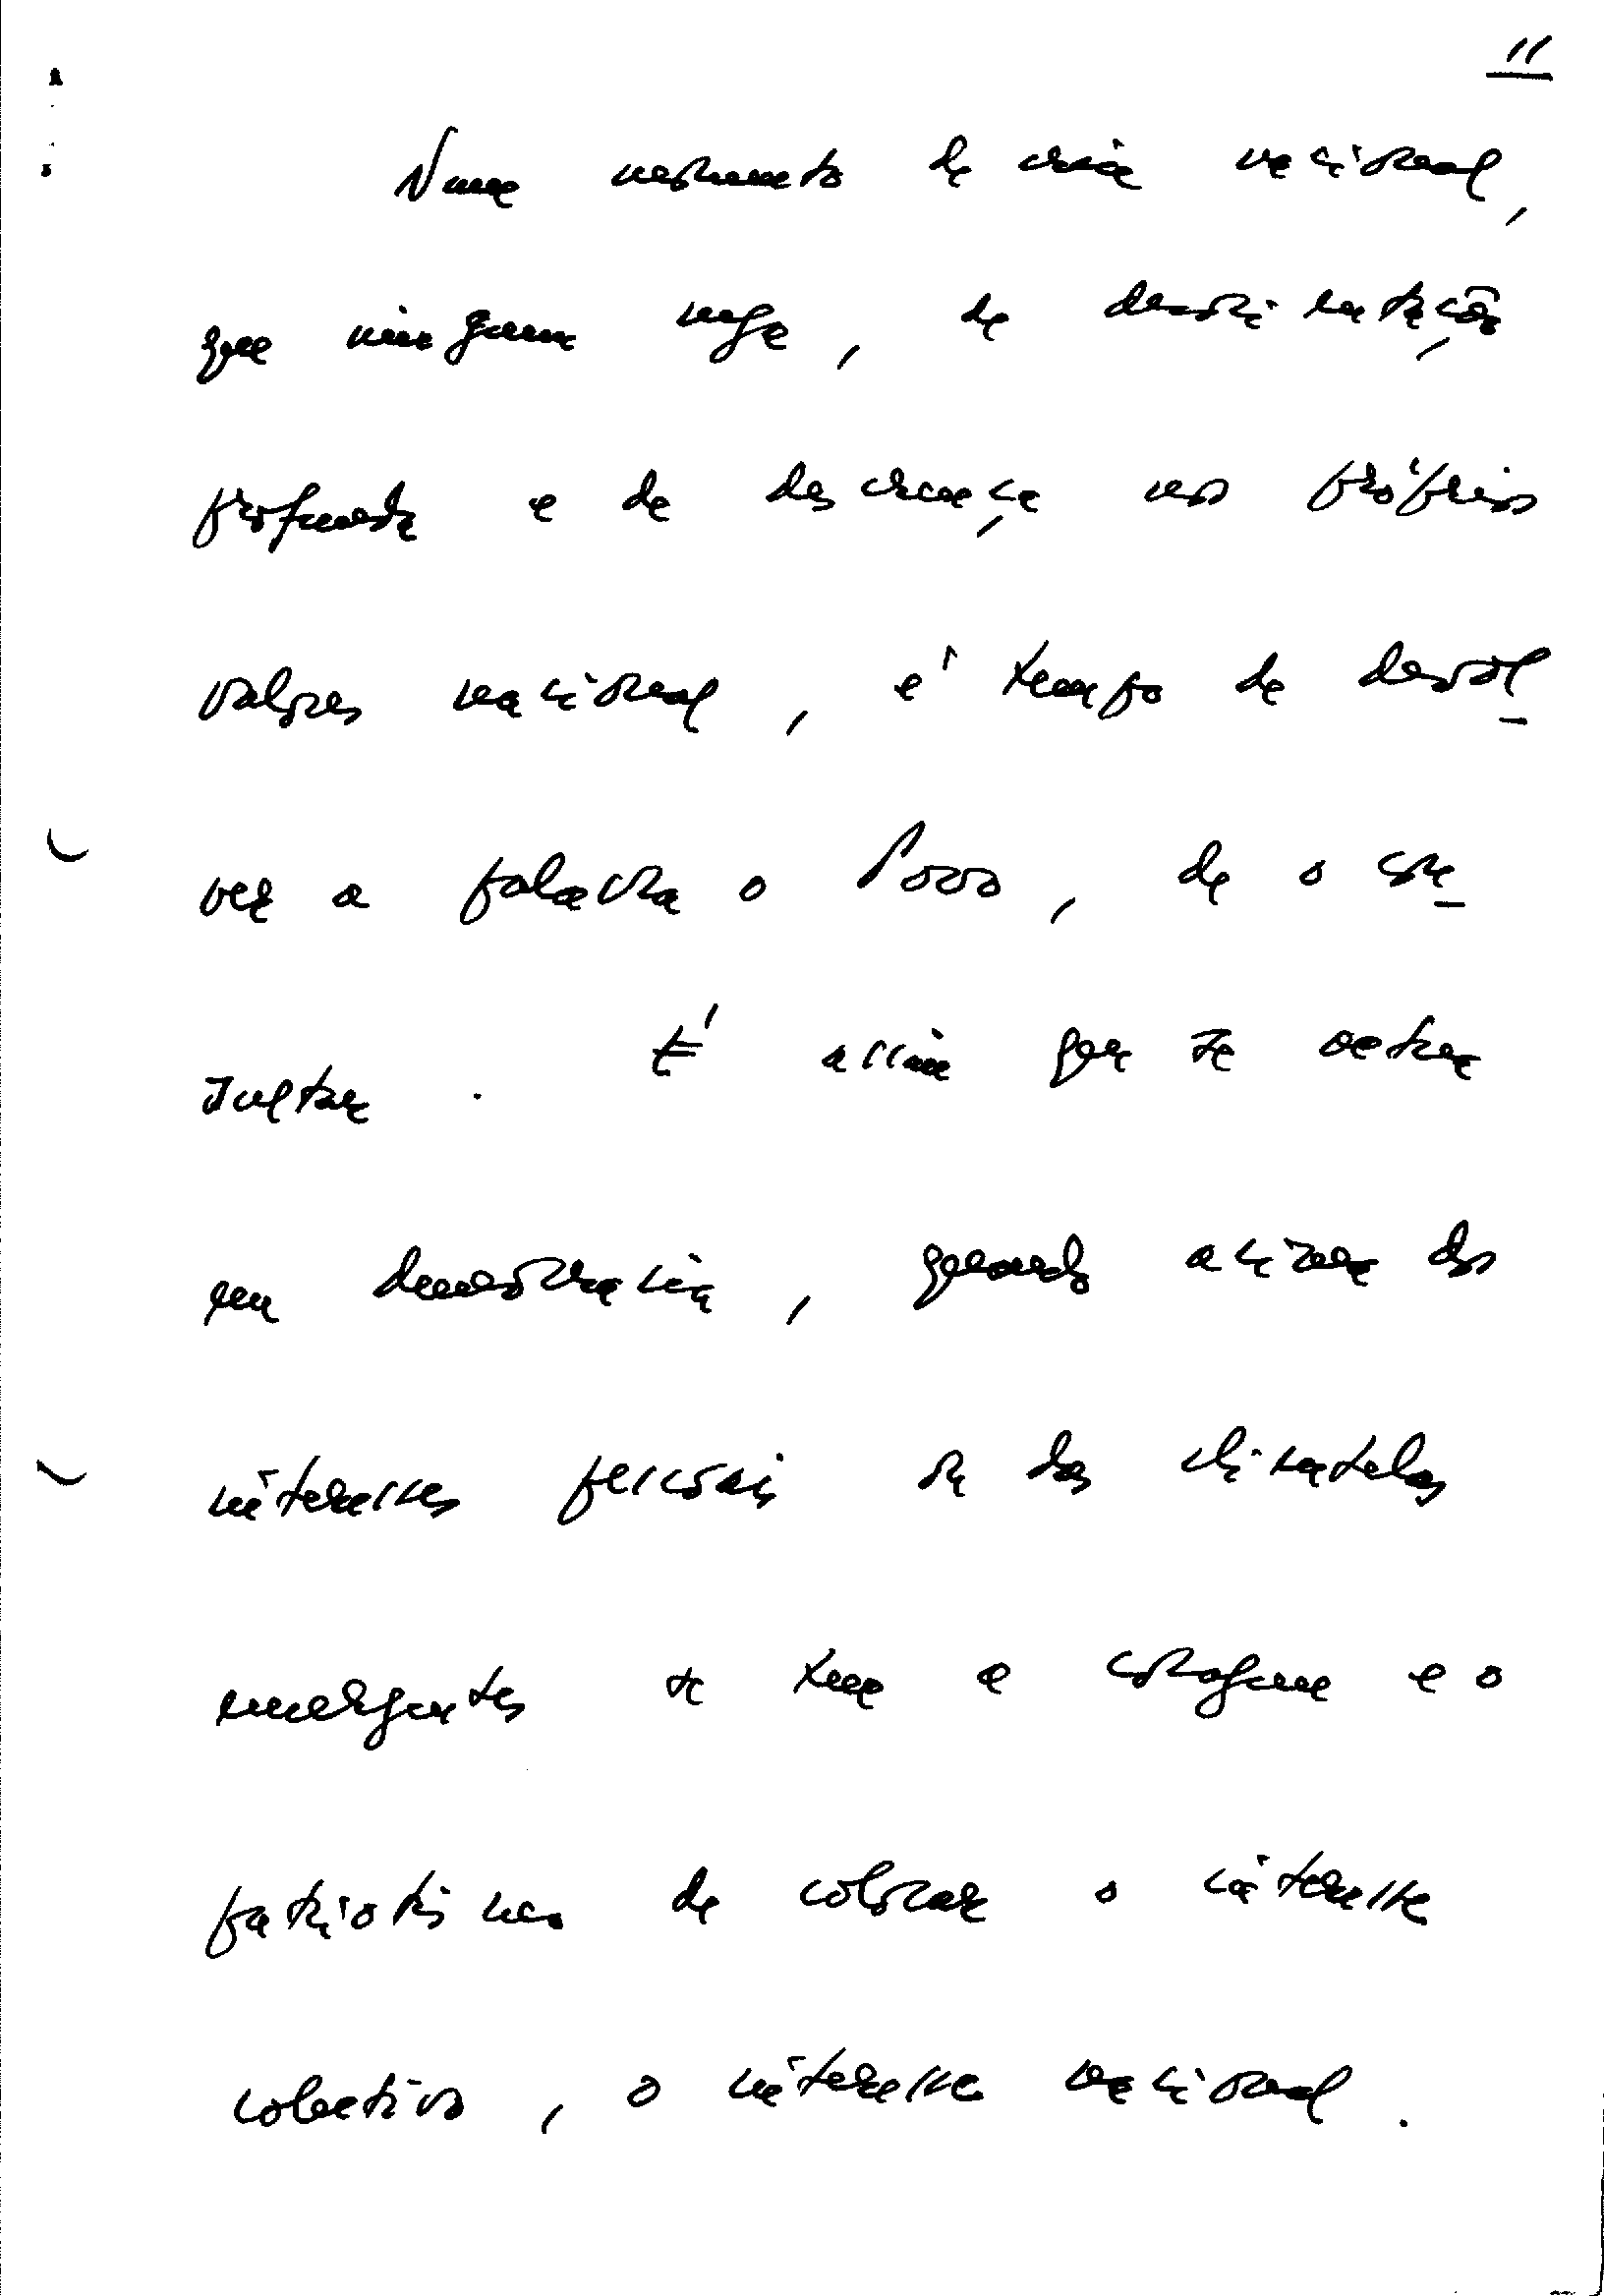 11
Num momento de crise nacional,
que ninguem nega, de desorientação
profunda e de descrença nos próprios
valores nacional, é tempo de devol-
ver a palavra o Povo, de o con-
sultar. É assim que se actua
em democracia, quando acima dos
interesses pessoais ou das clientelas
emergentes se tem a coragem e o
patriotismo de colocar o interesse
colectivo, o interesse nacional.